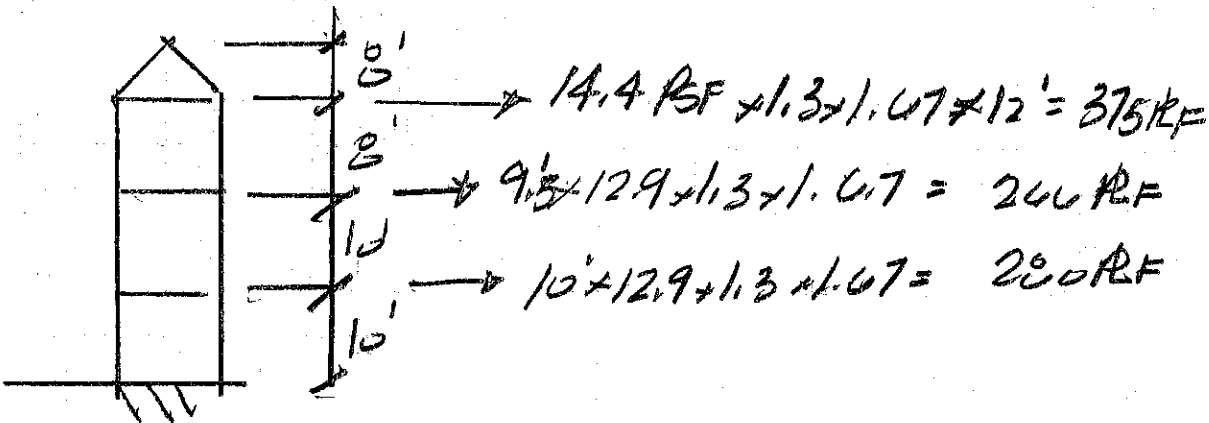 8'
14.4 PSF x 1.3 x 1.67 x 12' = 375 PLF
8'
9.5' x 12.9 x 1.3 x 1.67 = 266 PLF
10'
10' x 12.9 x 1.3 x 1.67 = 280 PLF
10'